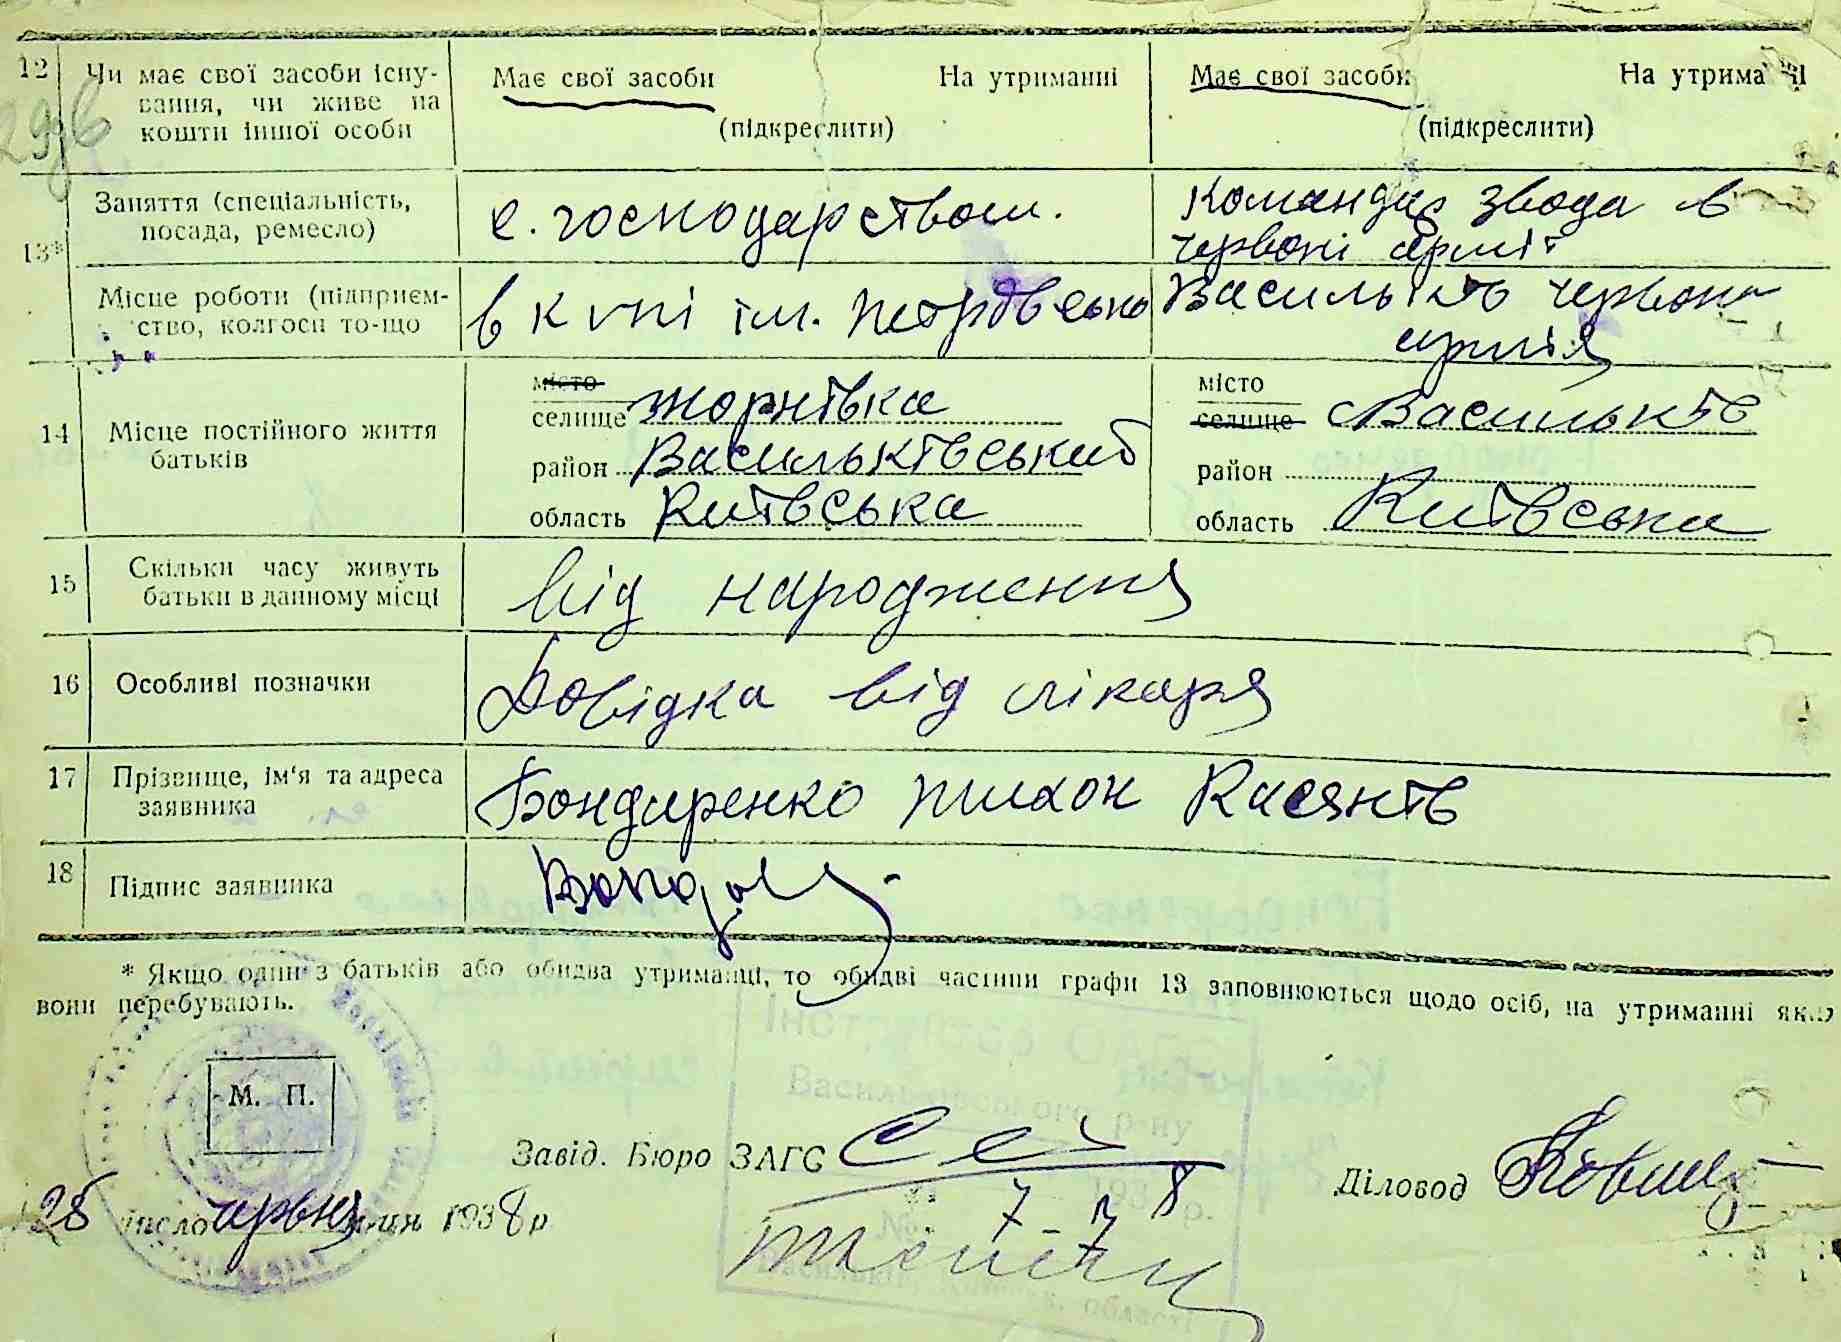 12 Чи має свої засоби існу-
вання, чи живе на
кошти іншої особи
Має свої засоби На утриманні
(підкреслити)
Має свої засоби На утрима
(підкреслити)
13* Заняття (спеціальність,
посада, ремесло)
с. господарством.
Командир звода в
червоні армії
Місце роботи (підприєм-
ство, колгосп то-що
в к упі ім. петрівсько
Васильків червона
армія
14 Місце постійного життя
батьків
місто
селище Жорнівка
район Васильківський
область Київська
місто
селище Васильків
район
область Київська
15 Скільки часу живуть
батьки в данному місці
від народження
16 Особливі позначки
Довідка від лікаря
17 Прізвище, ім'я та адреса
заявника
Бондаренко Тихон Касянів
18 Підпис заявника
* Якщо один з батьків або обидва утриманці, то обидві частини графи 13 заповнюються щодо осіб, на утриманні яких
вони перебувають.
М. П.
Завід. Бюро ЗАГС
Діловод
28 число червня м-ця 1938 р